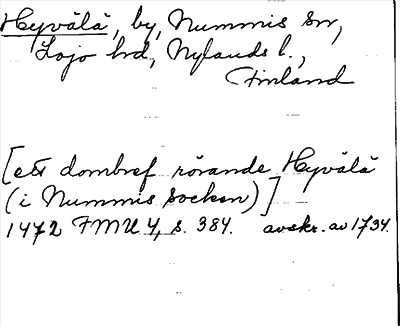 Hyvälä, by, Nummis sn,
Lojo hd, Nylands l.,
Finland
[ett dombref rörande Hyvälä
(i Nummis socken)]
1472 FMU 4, s. 384. avskr. av 1734.